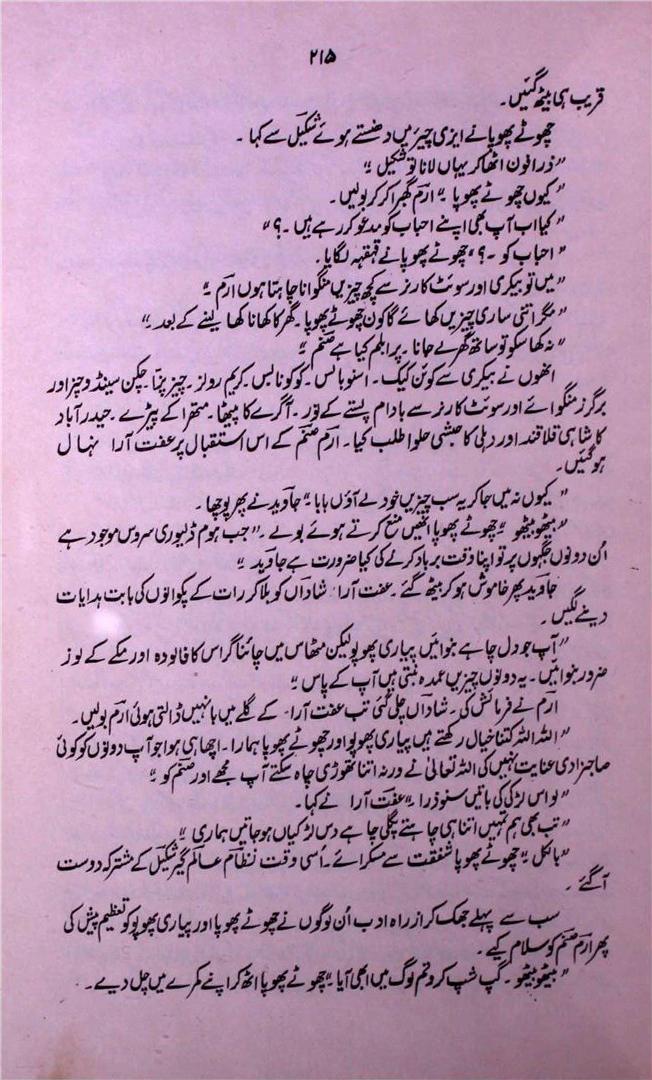 ۲۱۵
قریب ہی بیٹھ گئیں۔
چھوٹے پھوپا نے ایزی چیئر میں دھنستے ہوئے شکیل سے کہا۔
"ذرا فون اٹھا کر یہاں لانا تو شکیل۔"
"کیوں چھوٹے پھوپا۔" ارم گھبرا کر بولیں۔
"کیا اب آپ بھی اپنے احباب کو مدعو کر رہے ہیں۔؟"
"احباب کو۔؟" چھوٹے پھوپا نے قہقہہ لگایا۔
"میں تو بیکری اور سوئٹ کارنر سے کچھ چیزیں منگوانا چاہتا ہوں ارم۔"
"مگر اتنی ساری چیزیں کھائے گا کون چھوٹے پھوپا۔ گھر کا کھانا کھا لینے کے بعد۔"
"نہ کھا سکو تو ساتھ گھر لے جانا۔ پرابلم کیا ہے صنم۔"
انھوں نے بیکری سے کوئن کیک۔ اسنو بالس۔ کوکونا بس۔ کریم رولز۔ چیز پزا۔ چکن سینڈوچز اور
برگرز منگوائے اور سوئٹ کارنر سے بادام پستے کے لوز۔ آگرے کا پیٹھا۔ متھرا کے پیڑے۔ حیدرآباد
کا شاہی قلاقند اور دہلی کا حبشی حلوا طلب کیا۔ ارم صنم کے اس استقبال پر عفت آرا نہال
ہو گئیں۔
"کیوں نہ میں جا کر یہ سب چیزیں خود لے آؤں بابا۔" جاوید نے پھر پوچھا۔
"بیٹھو بیٹھو۔" چھوٹے پھوپا انھیں منع کرتے ہوئے بولے۔ "جب ہوم ڈلیوری سروس موجود ہے
اُن دونوں جگہوں پر تو اپنا وقت برباد کرنے کی کیا ضرورت ہے جاوید۔"
جاوید پھر خاموش ہو کر بیٹھ گئے۔ عفت آرا شاداں کو بلا کر رات کے پکوانوں کی بابت ہدایات
دینے لگیں۔
"آپ جو دل چاہے بنوائیں پیاری پھوپو لیکن مٹھاس میں چائنا گراس کا فالودہ اور مکے کے لوز
ضرور بنوائیں۔ یہ دونوں چیزیں عمدہ بنتی ہیں آپ کے پاس۔"
ارم نے فرمائش کی۔ شاداں چلی گئی تب عفت آرا کے گلے میں بانہیں ڈالتی ہوئی ارم بولیں۔
"اللہ اللہ کتنا خیال رکھتے ہیں پیاری پھوپو اور چھوٹے پھوپا ہمارا۔ اچھا ہی ہوا جو آپ دونوں کو کوئی
صاحبزادی عنایت نہیں کی اللہ تعالیٰ نے ورنہ اتنا تھوڑی چاہ سکتے آپ مجھے اور صنم کو۔"
"لو اس لڑکی کی باتیں سنو ذرا۔" عفت آرا نے کہا۔
"تب بھی ہم تمہیں اتنا ہی چاہتے پگلی چاہے دس لڑکیاں ہو جاتیں ہماری۔"
"بالکل۔" چھوٹے پھوپا شفقت سے مسکرائے۔ اُسی وقت نظام عالم گیر شکیل کے مشترکہ دوست
آ گئے۔
سب سے پہلے جھک کر از راہ ادب اُن لوگوں نے چھوٹے پھوپا اور پیاری پھوپو کو تعظیم پیش کی
پھر ارم صنم کو سلام کیے۔
"بیٹھو بیٹھو۔ گپ شپ کرو تم لوگ میں ابھی آیا۔" چھوٹے پھوپا اٹھ کر اپنے کمرے میں چل دیے۔